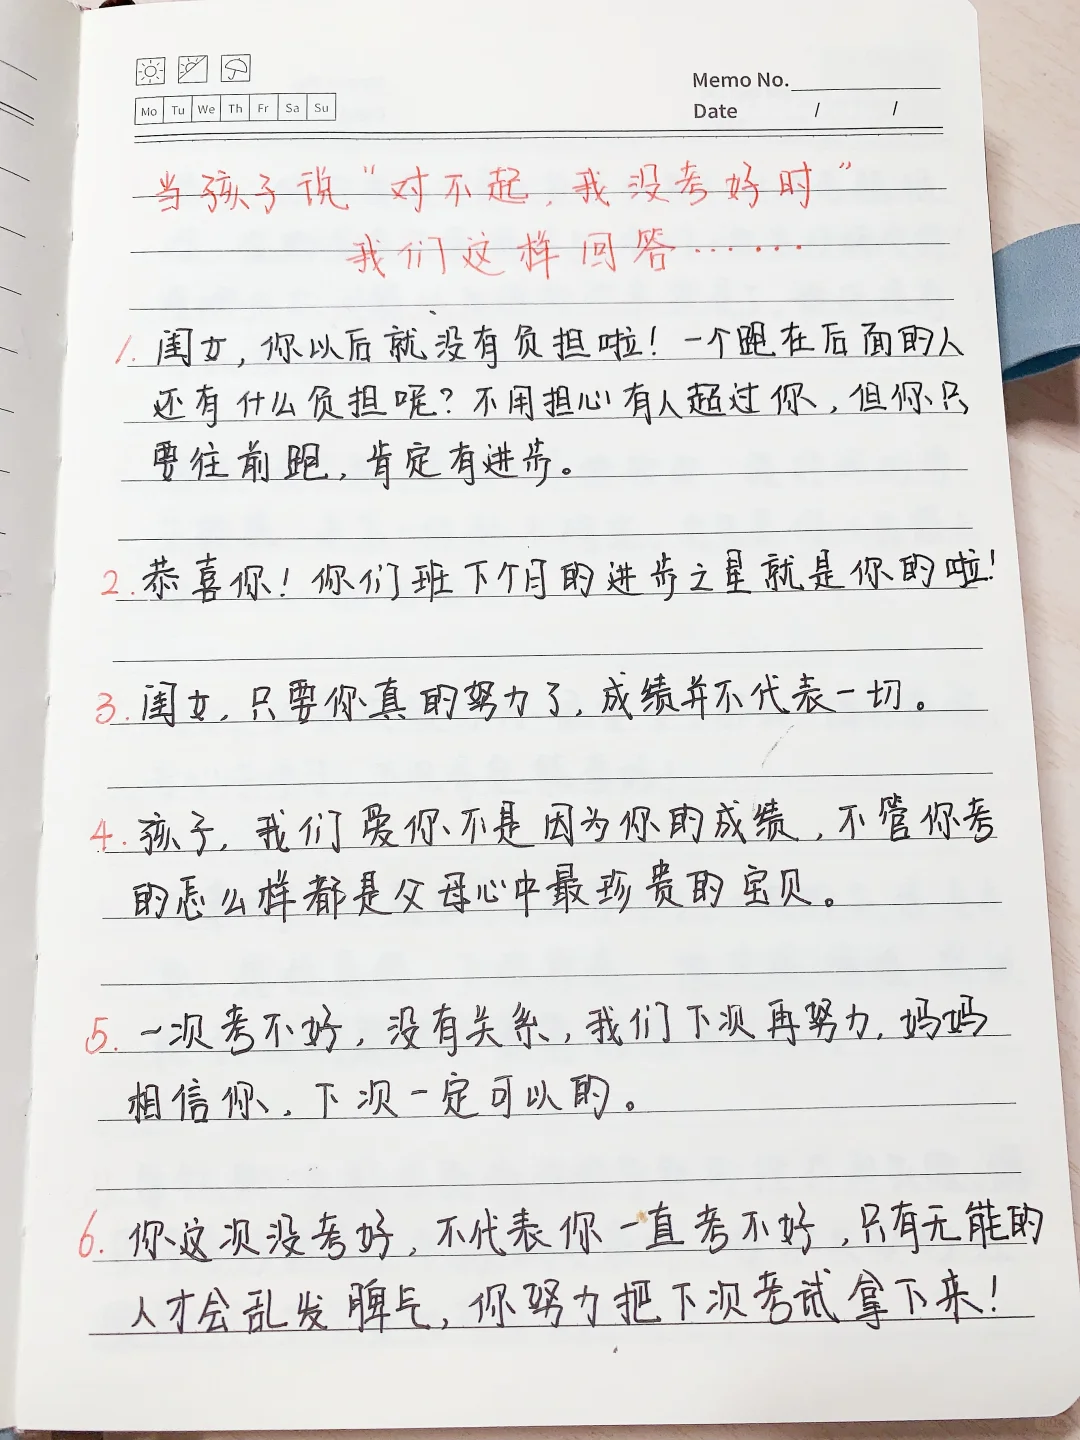 Memo No.
Mo Tu We Th Fr Sa Su
Date / /
当孩子说“对不起，我没考好时”
我们这样回答……
1. 闺女，你以后就没有负担啦！一个跑在后面的人
还有什么负担呢？不用担心有人超过你，但你只
要往前跑，肯定有进步。
2. 恭喜你！你们班下个月的进步之星就是你的啦！
3. 闺女，只要你真的努力了，成绩并不代表一切。
4. 孩子，我们爱你不是因为你的成绩，不管你考
的怎么样都是父母心中最珍贵的宝贝。
5. 一次考不好，没有关系，我们下次再努力，妈妈
相信你，下次一定可以的。
6. 你这次没考好，不代表你一直考不好，只有无能的
人才会乱发脾气，你努力把下次考试拿下来！